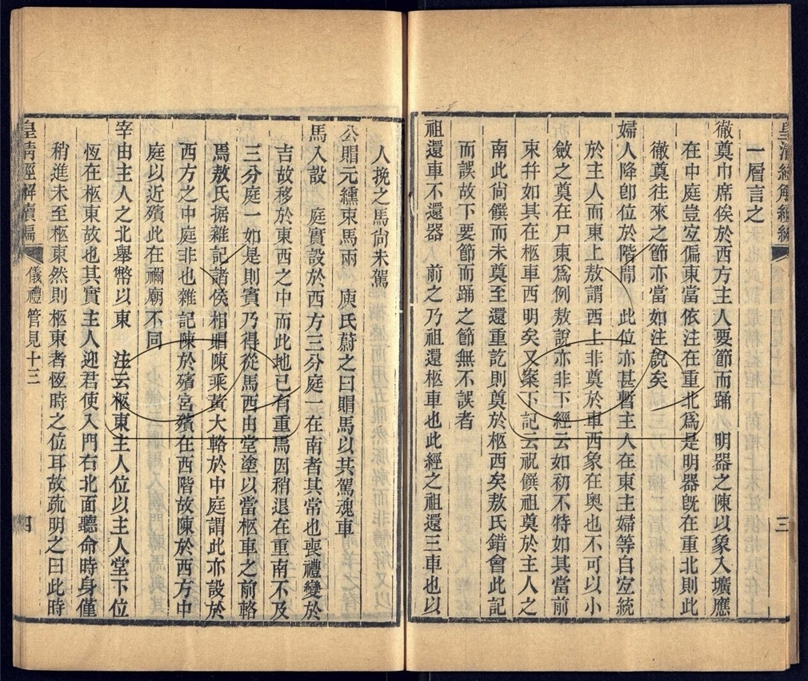 皇清經解續編
三
一層言之
徹奠巾席俟於西方主人要節而踊　明器之陳以象入壙應
在中庭豈宜偏東當依注在重北爲是明器旣在重北則此
徹奠往來之節亦當如注說矣
婦人降卽位於階閒　此位亦甚暫主人在東主婦等自宜統
於主人而東上敖謂西上非奠於車西象在奧也不可以小
斂之奠在尸東爲例敖說亦非下經云如初不特如其當前
束幷如其在柩車西明矣又案下記云祝饌祖奠於主人之
南此尙饌而未奠至還重訖則奠於柩西矣敖氏錯會此記
而誤故下要節而踊之節無不誤者
祖還車不還器　前之乃祖還柩車也此經之祖還三車也以
人挽之馬尙未駕
公賵元纁束馬兩　庾氏蔚之曰賵馬以其駕魂車
馬入設　庭實設於西方三分庭一在南者其常也喪禮變於
吉故移於東西之中而此地已有重馬因稍退在重南不及
三分庭一如是則賓乃得從馬西由堂塗以當柩車之前輅
焉敖氏据雜記諸侯相賵陳乘黃大輅於中庭謂此亦設於
西方之中庭非也雜記陳於殯宮殯在西階故陳於西方中
庭以近殯此在禰廟不同
宰由主人之北舉幣以東　注云柩東主人位以主人堂下位
恆在柩東故也其實主人迎君使入門右北面聽命時身僅
稍進未至柩東然則柩東者恆時之位耳故疏明之曰此時
皇清經解續編
儀禮管見十三
四